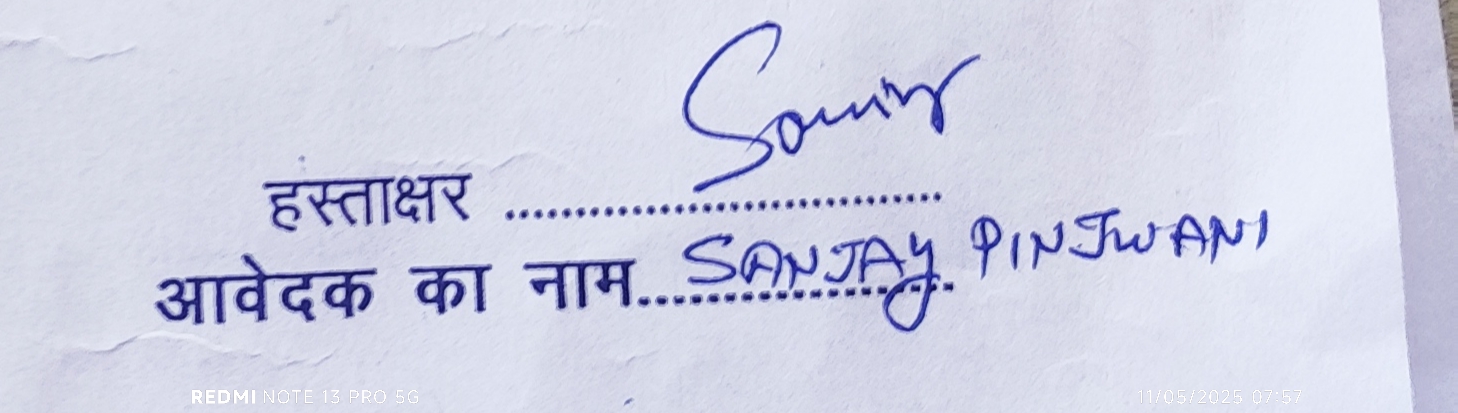 हस्ताक्षर ..............................
आवेदक का नाम...................... SANJAY PINJWANI
REDMI NOTE 13 PRO 5G 11/05/2025 07:57